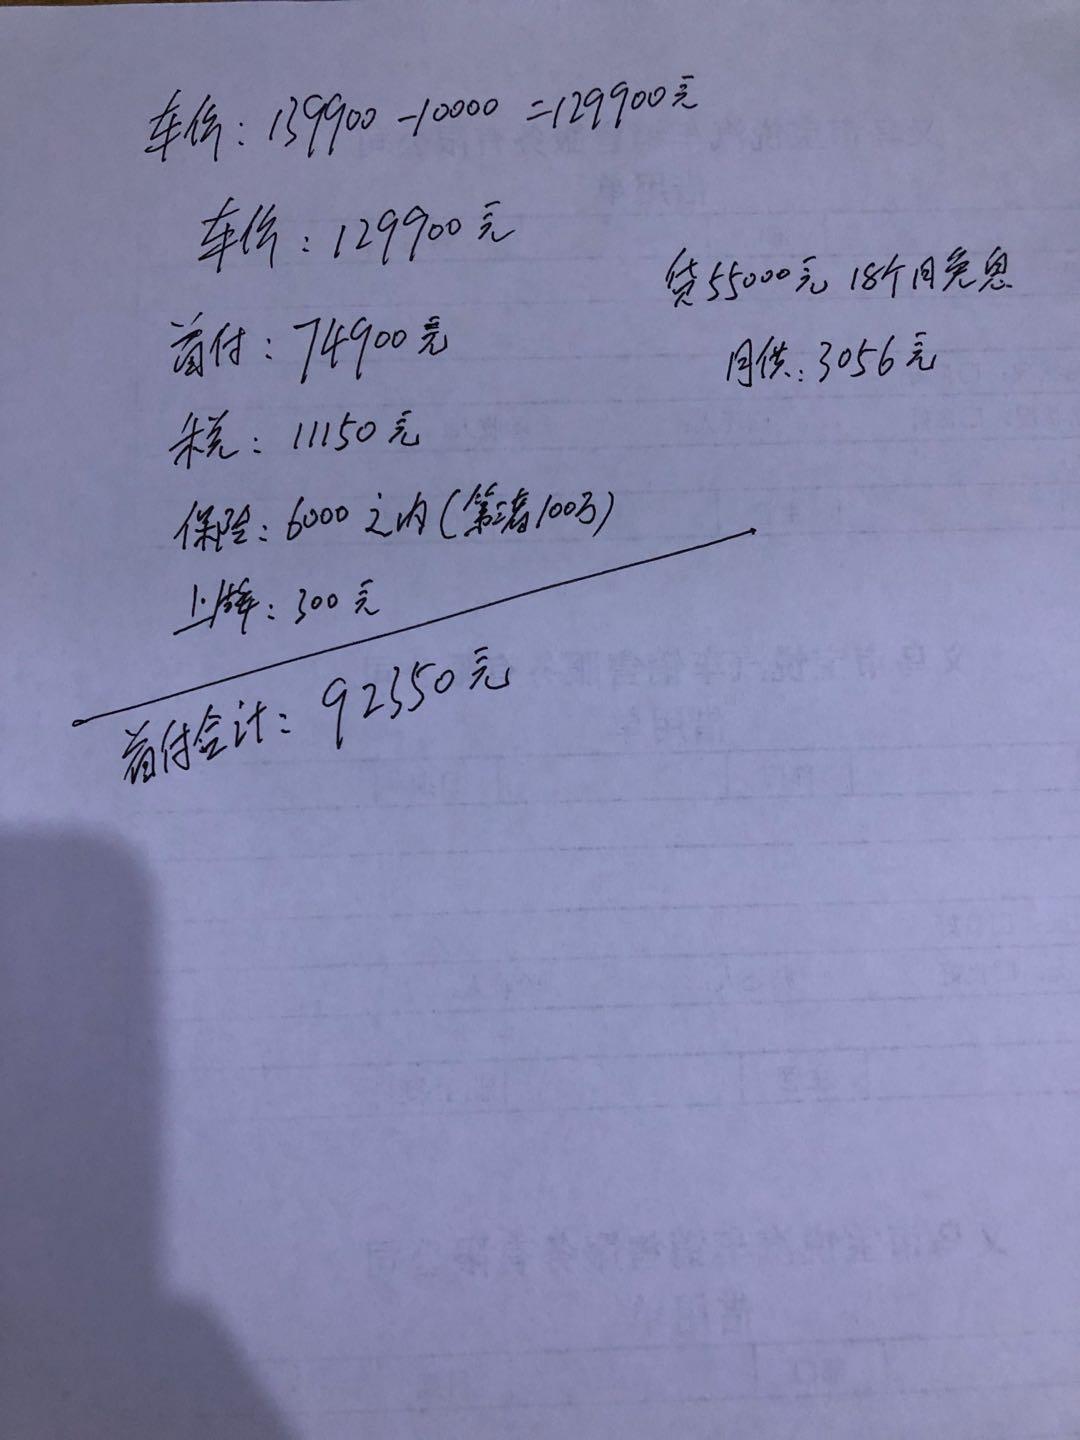 车价：139900-10000=129900元
车价：129900元
贷55000元 18个月免息
首付：74900元
月供：3056元
税：11150元
保险：6000之内(第三者100万)
上牌：300元
首付合计：92350元